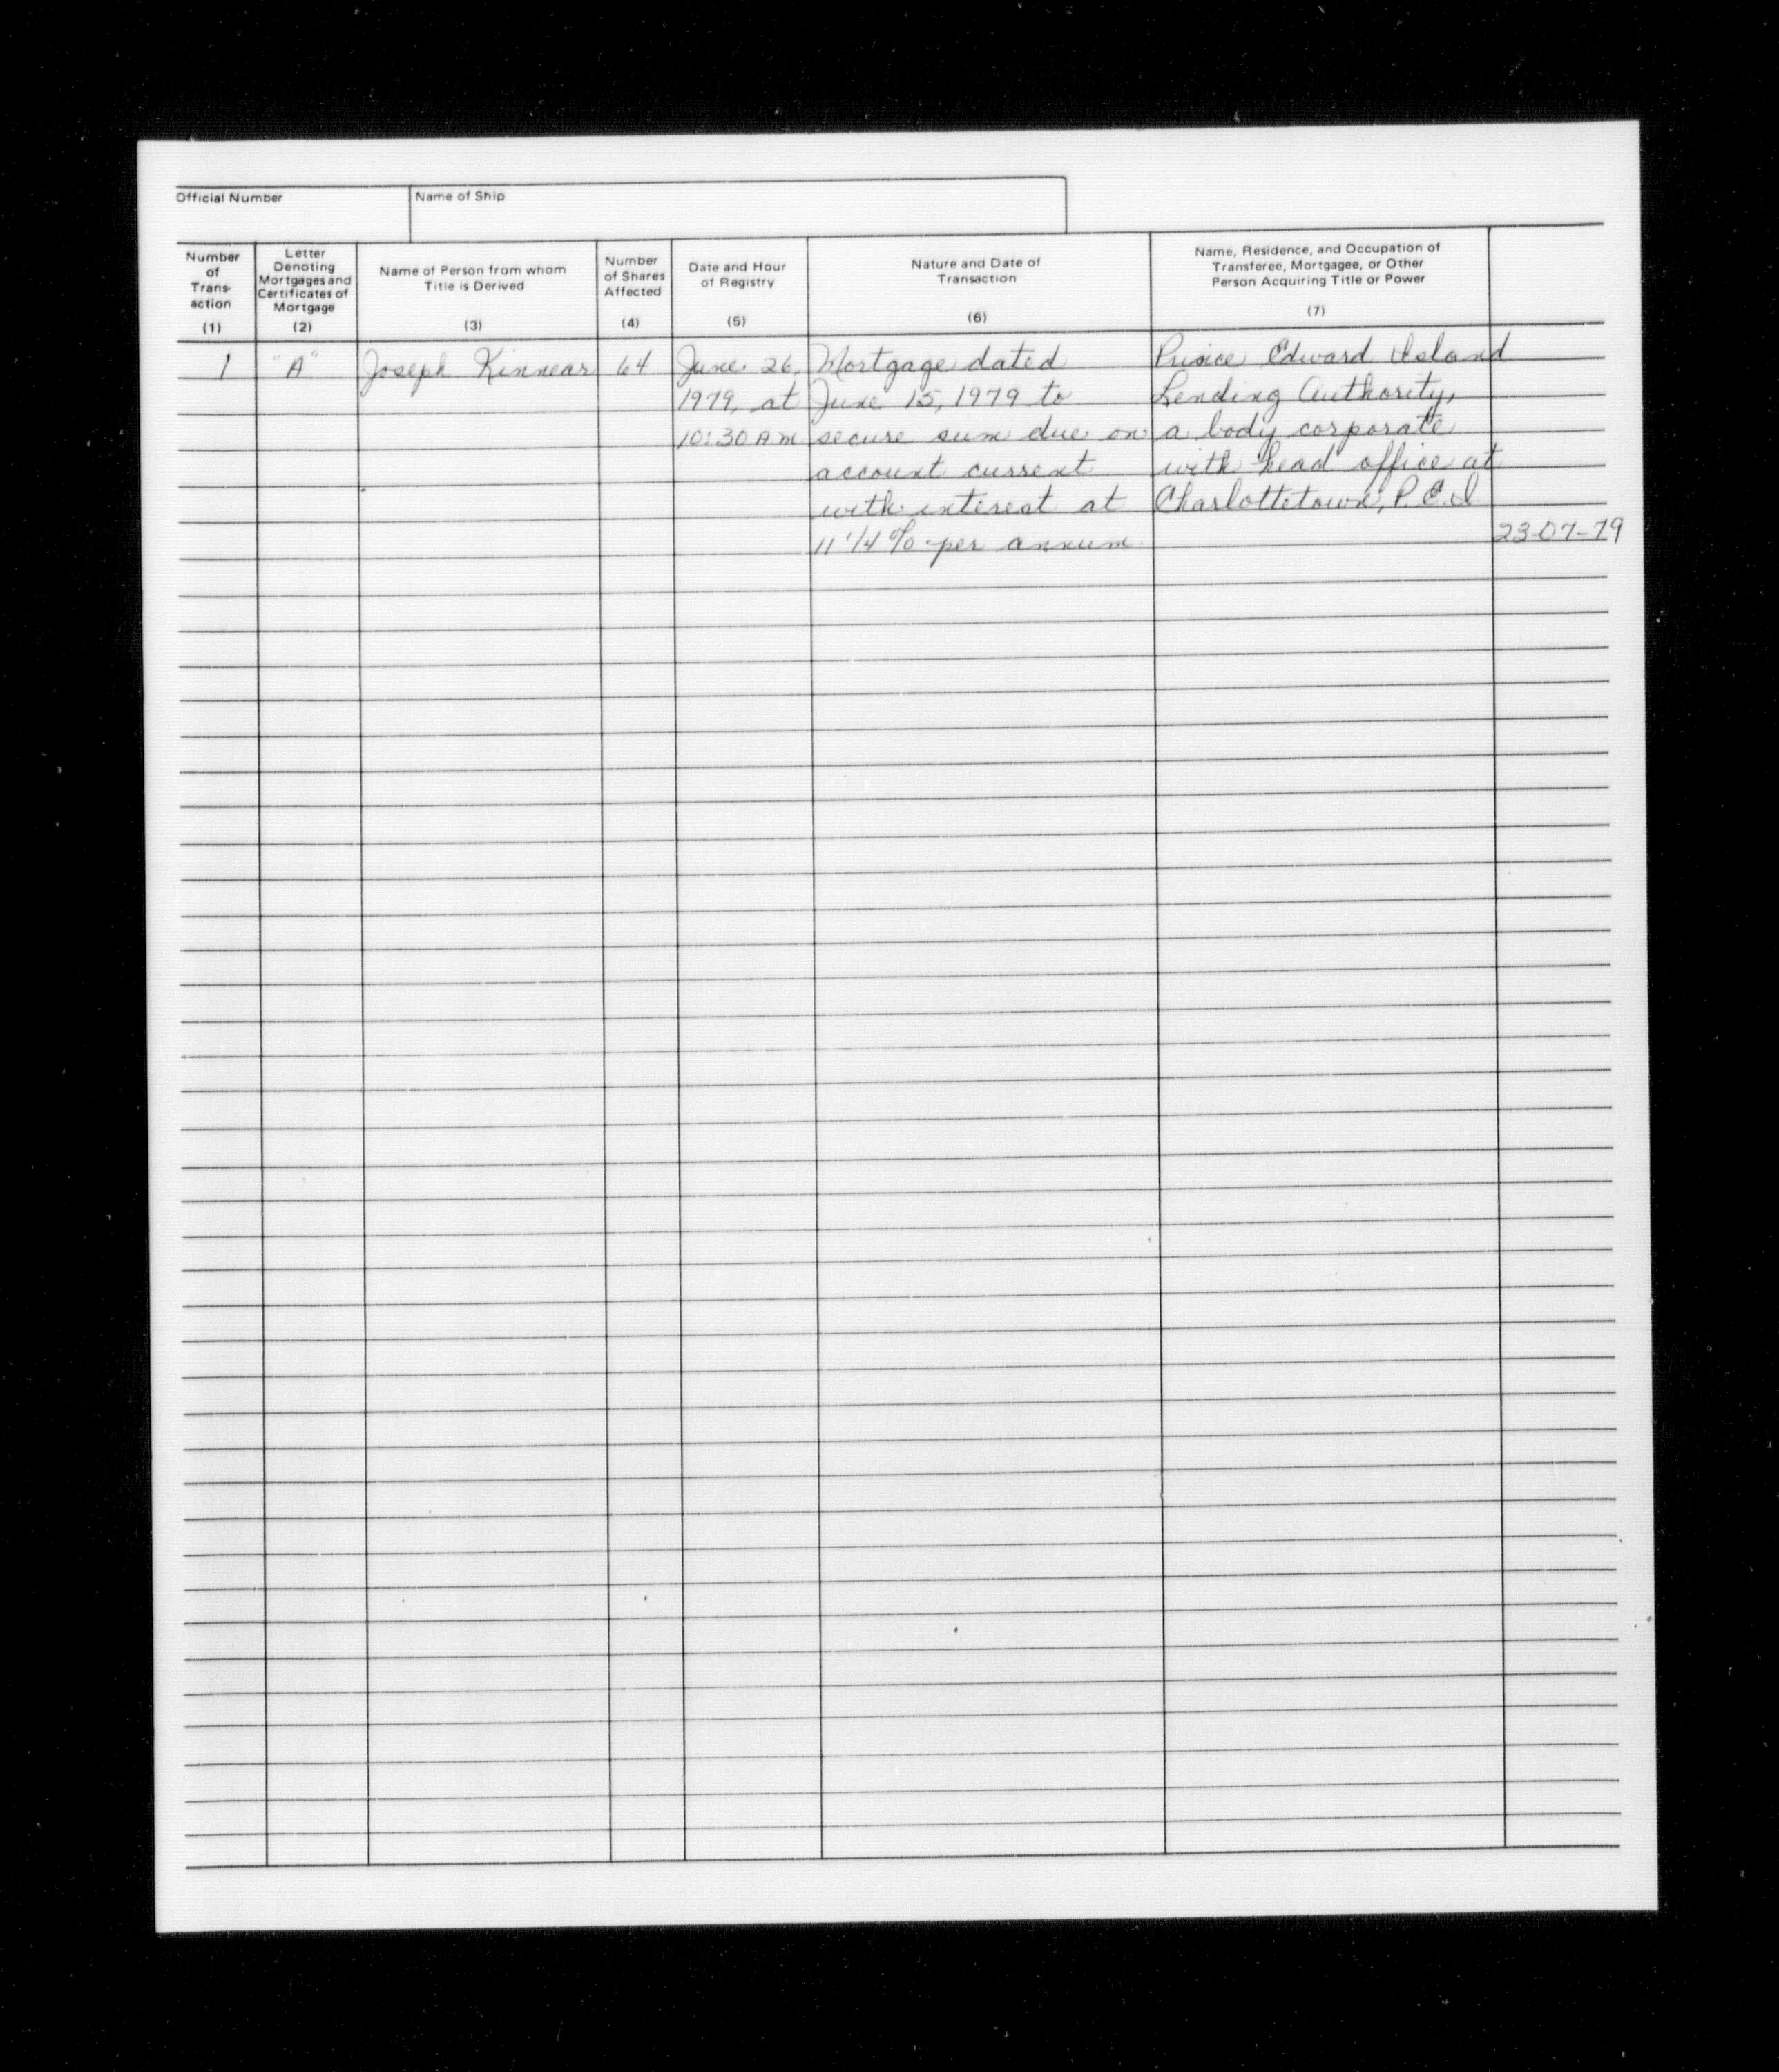 Official Number
Name of Ship
Number of Trans-action (1)
Letter Denoting Mortgages and Certificates of Mortgage (2)
Name of Person from whom Title is Derived (3)
Number of Shares Affected (4)
Date and Hour of Registry (5)
Nature and Date of Transaction (6)
Name, Residence, and Occupation of Transferee, Mortgagee, or Other Person Acquiring Title or Power (7)
1 "A" Joseph Kinnear 64 June 26, Mortgage dated Prince Edward Island
1979, at June 15, 1979 to Lending Authority,
10:30 AM secure sum due on a body corporate
account current with head office at
with interest at Charlottetown, P.E.I.
11 1/4 % per annum 23-07-79